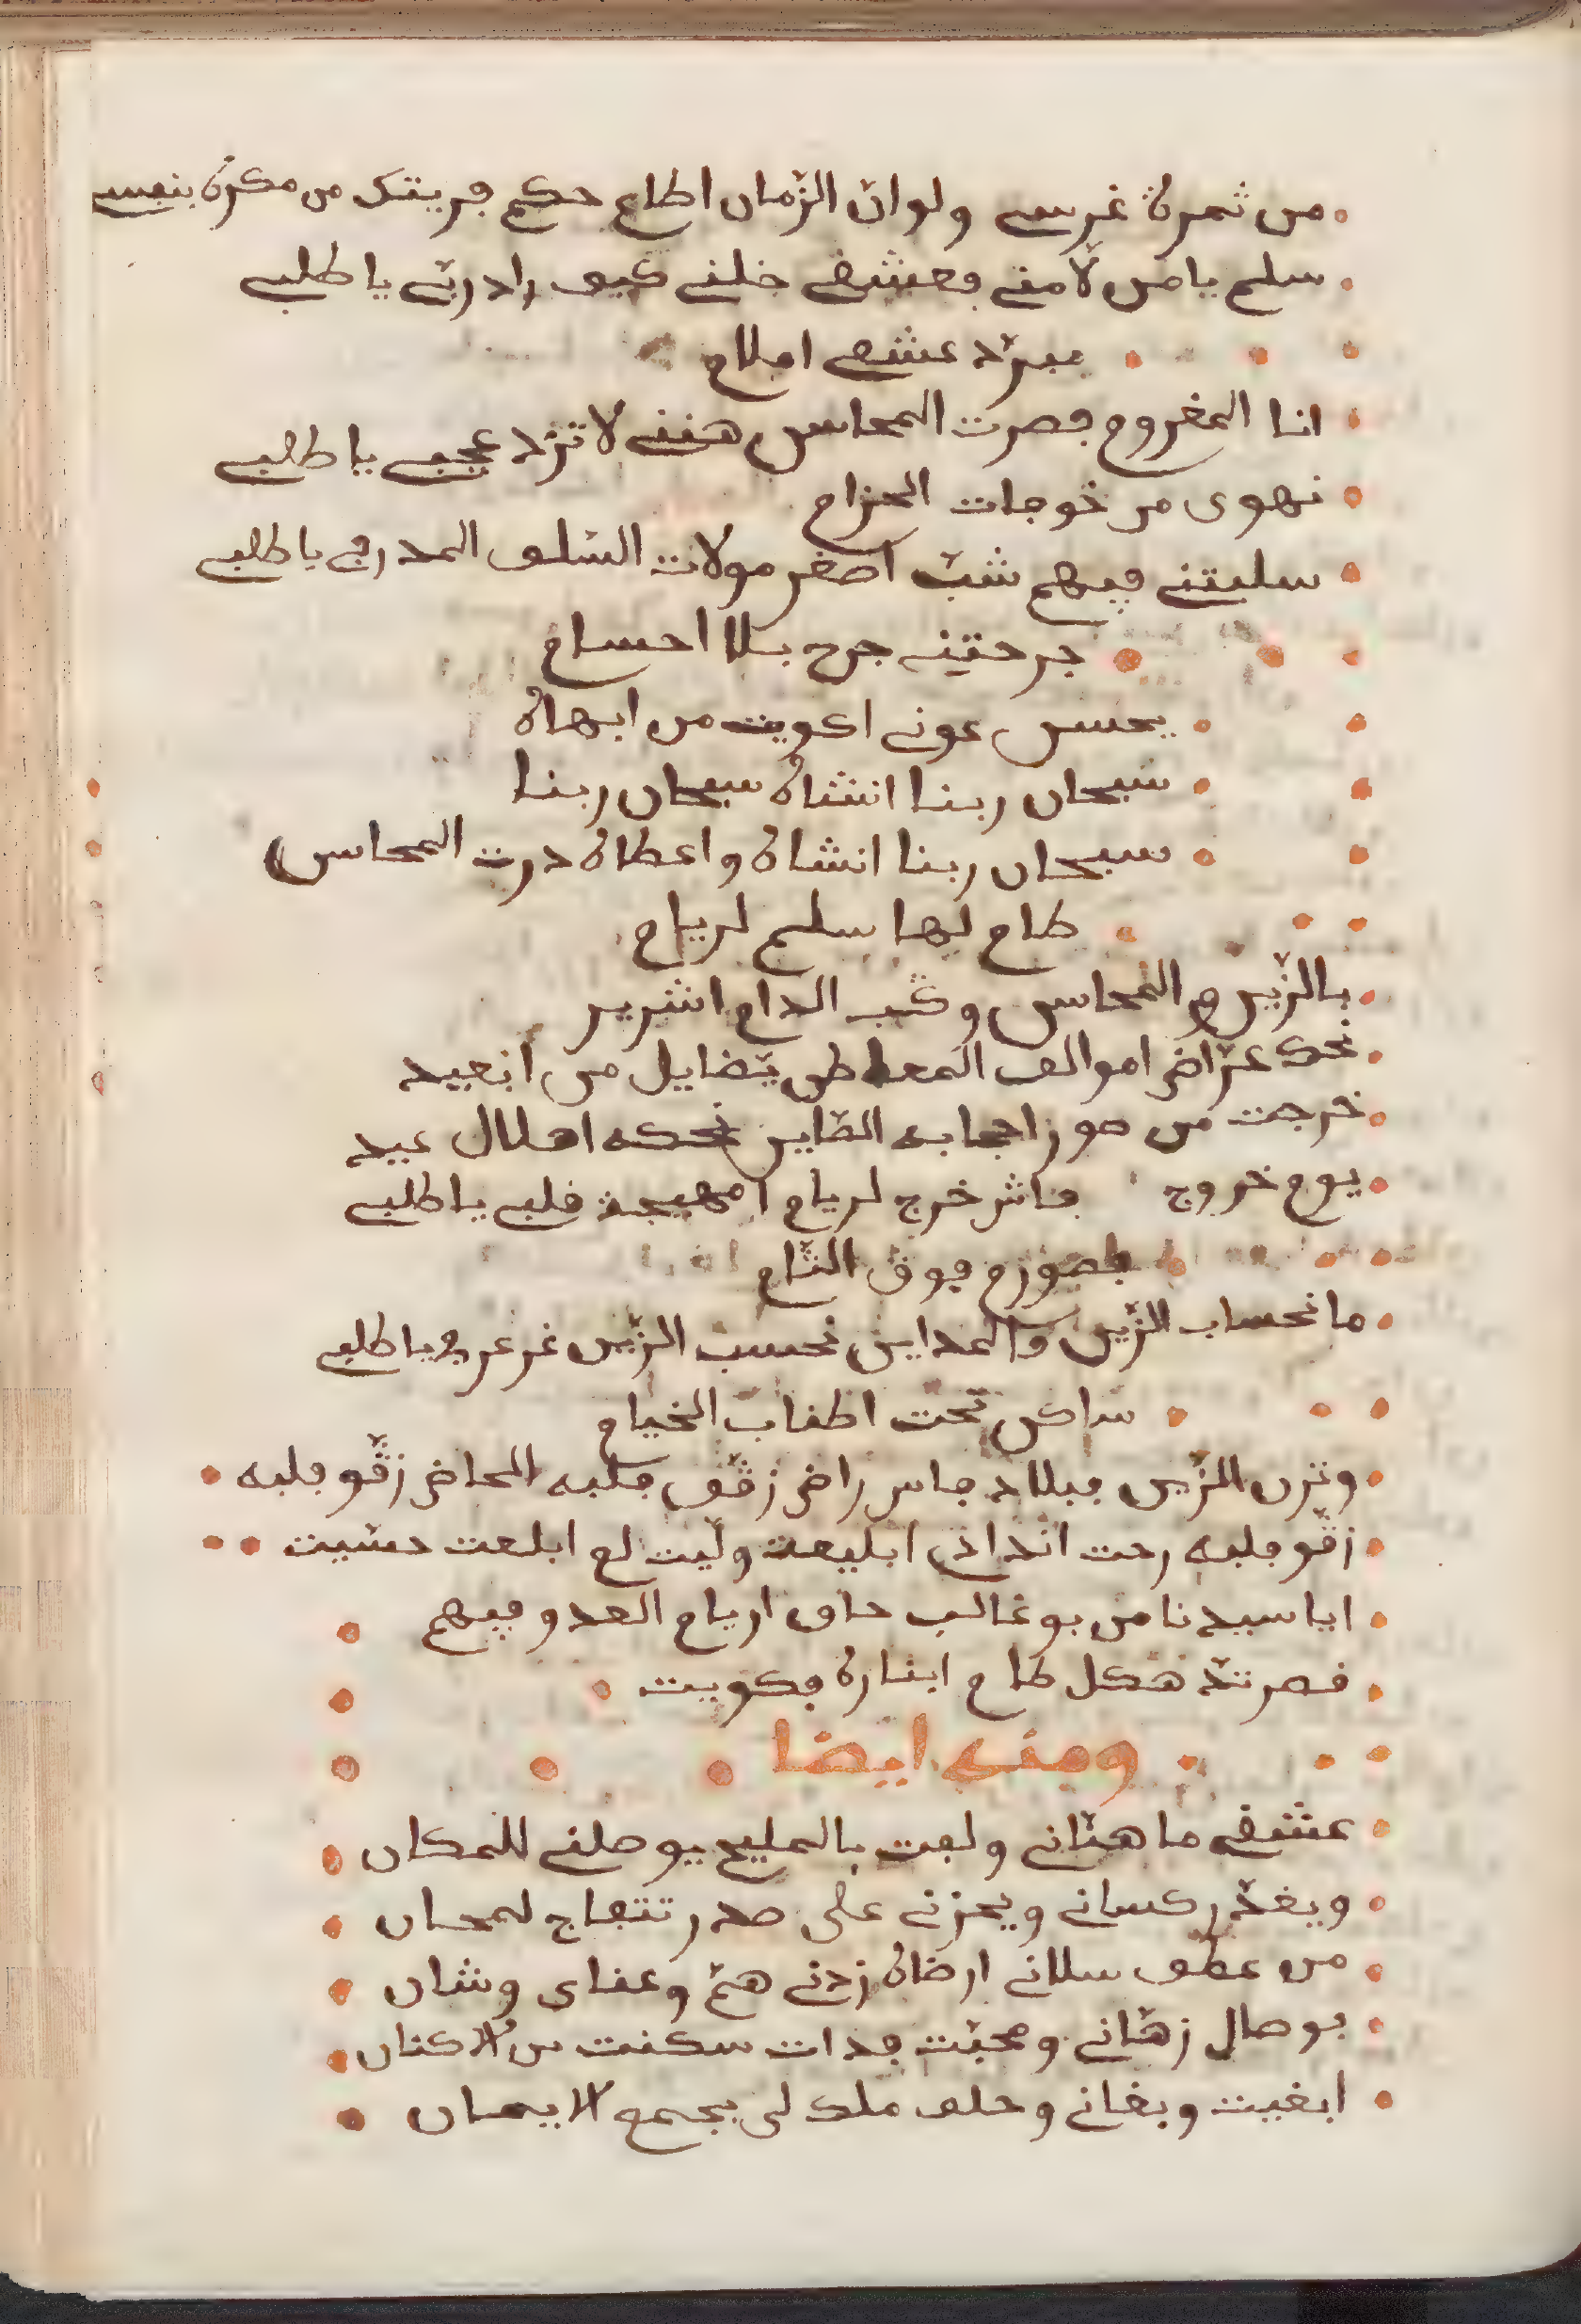 من ثمرة غرسي ولو ان الزمان اطاع حكم فريتك من مكره بنفسي
سلم يا من لامني فعشقي خلني كيف راد ربي يا طلبي
عشقي املاح
انا المغروم فصرت المحاسن هنني لا تزد عجبي يا طلبي
نهوى من خوجات الحزام
سلبتني فيهم شب اصغر مولات السلف المدرجي يا طلبي
جرحتني جرح بلا احسام
يحسن عوني اكويت من ابهاه
سبحان ربنا انشاه سبحان ربنا
سبحان ربنا انشاه واعطاه درت المحاسن
طاع لها سلم لريام
بالزين والمحاسن وكب الدام اشرير
نحك عراض اموالف المعاطن يتضايل من ابعيد
خرجت من صور احجابه الطاير نحكه اهلال عيد
يوم خروج فاش خرج لريام امهيجة قلبي يا طلبي
فوق التام
ما نحساب الزين والمداين نحسب الزين غر عربي يا طلبي
ساكن تحت اطناب الخيام
ونزن الزين فبلاد فاس راض زقو فلبه المحاض زقو فلبه
زقو فلبه رحت انداني ابليعت وليت لع ابلعت حشيت
ايا سيدنا من بوغالب حاف اريام العدو فيهم
فصرتد هكل طاع ابناره فكويت
ومنه ايضا
عشقي ما هناني ولعت بالمليح يوصلني للمكان
ويغدر كساني ويحزني على صدر تتفاج لمحان
من عطف سلاني ارضاه زدني هم وعناي وشان
بوصال زهاني ومحبت فدات سكنت من لاكنان
ابغيت وبغاني وحلف ملك لي بجمع لايمان